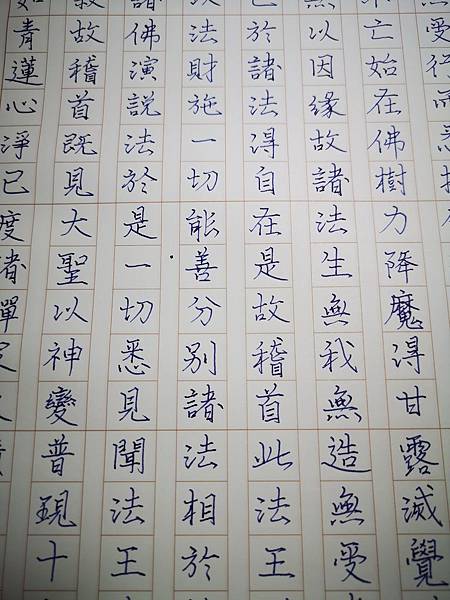 受行而悉
亡始在佛樹力降魔得甘露滅覺
以因緣故諸法生無我無造無受
於諸法得自在是故稽首此法王
法財施一切能善分別諸法相於
諸佛演說法於是一切悉見聞法王
故稽首既見大聖以神變普現十
青蓮心淨已度諸禪